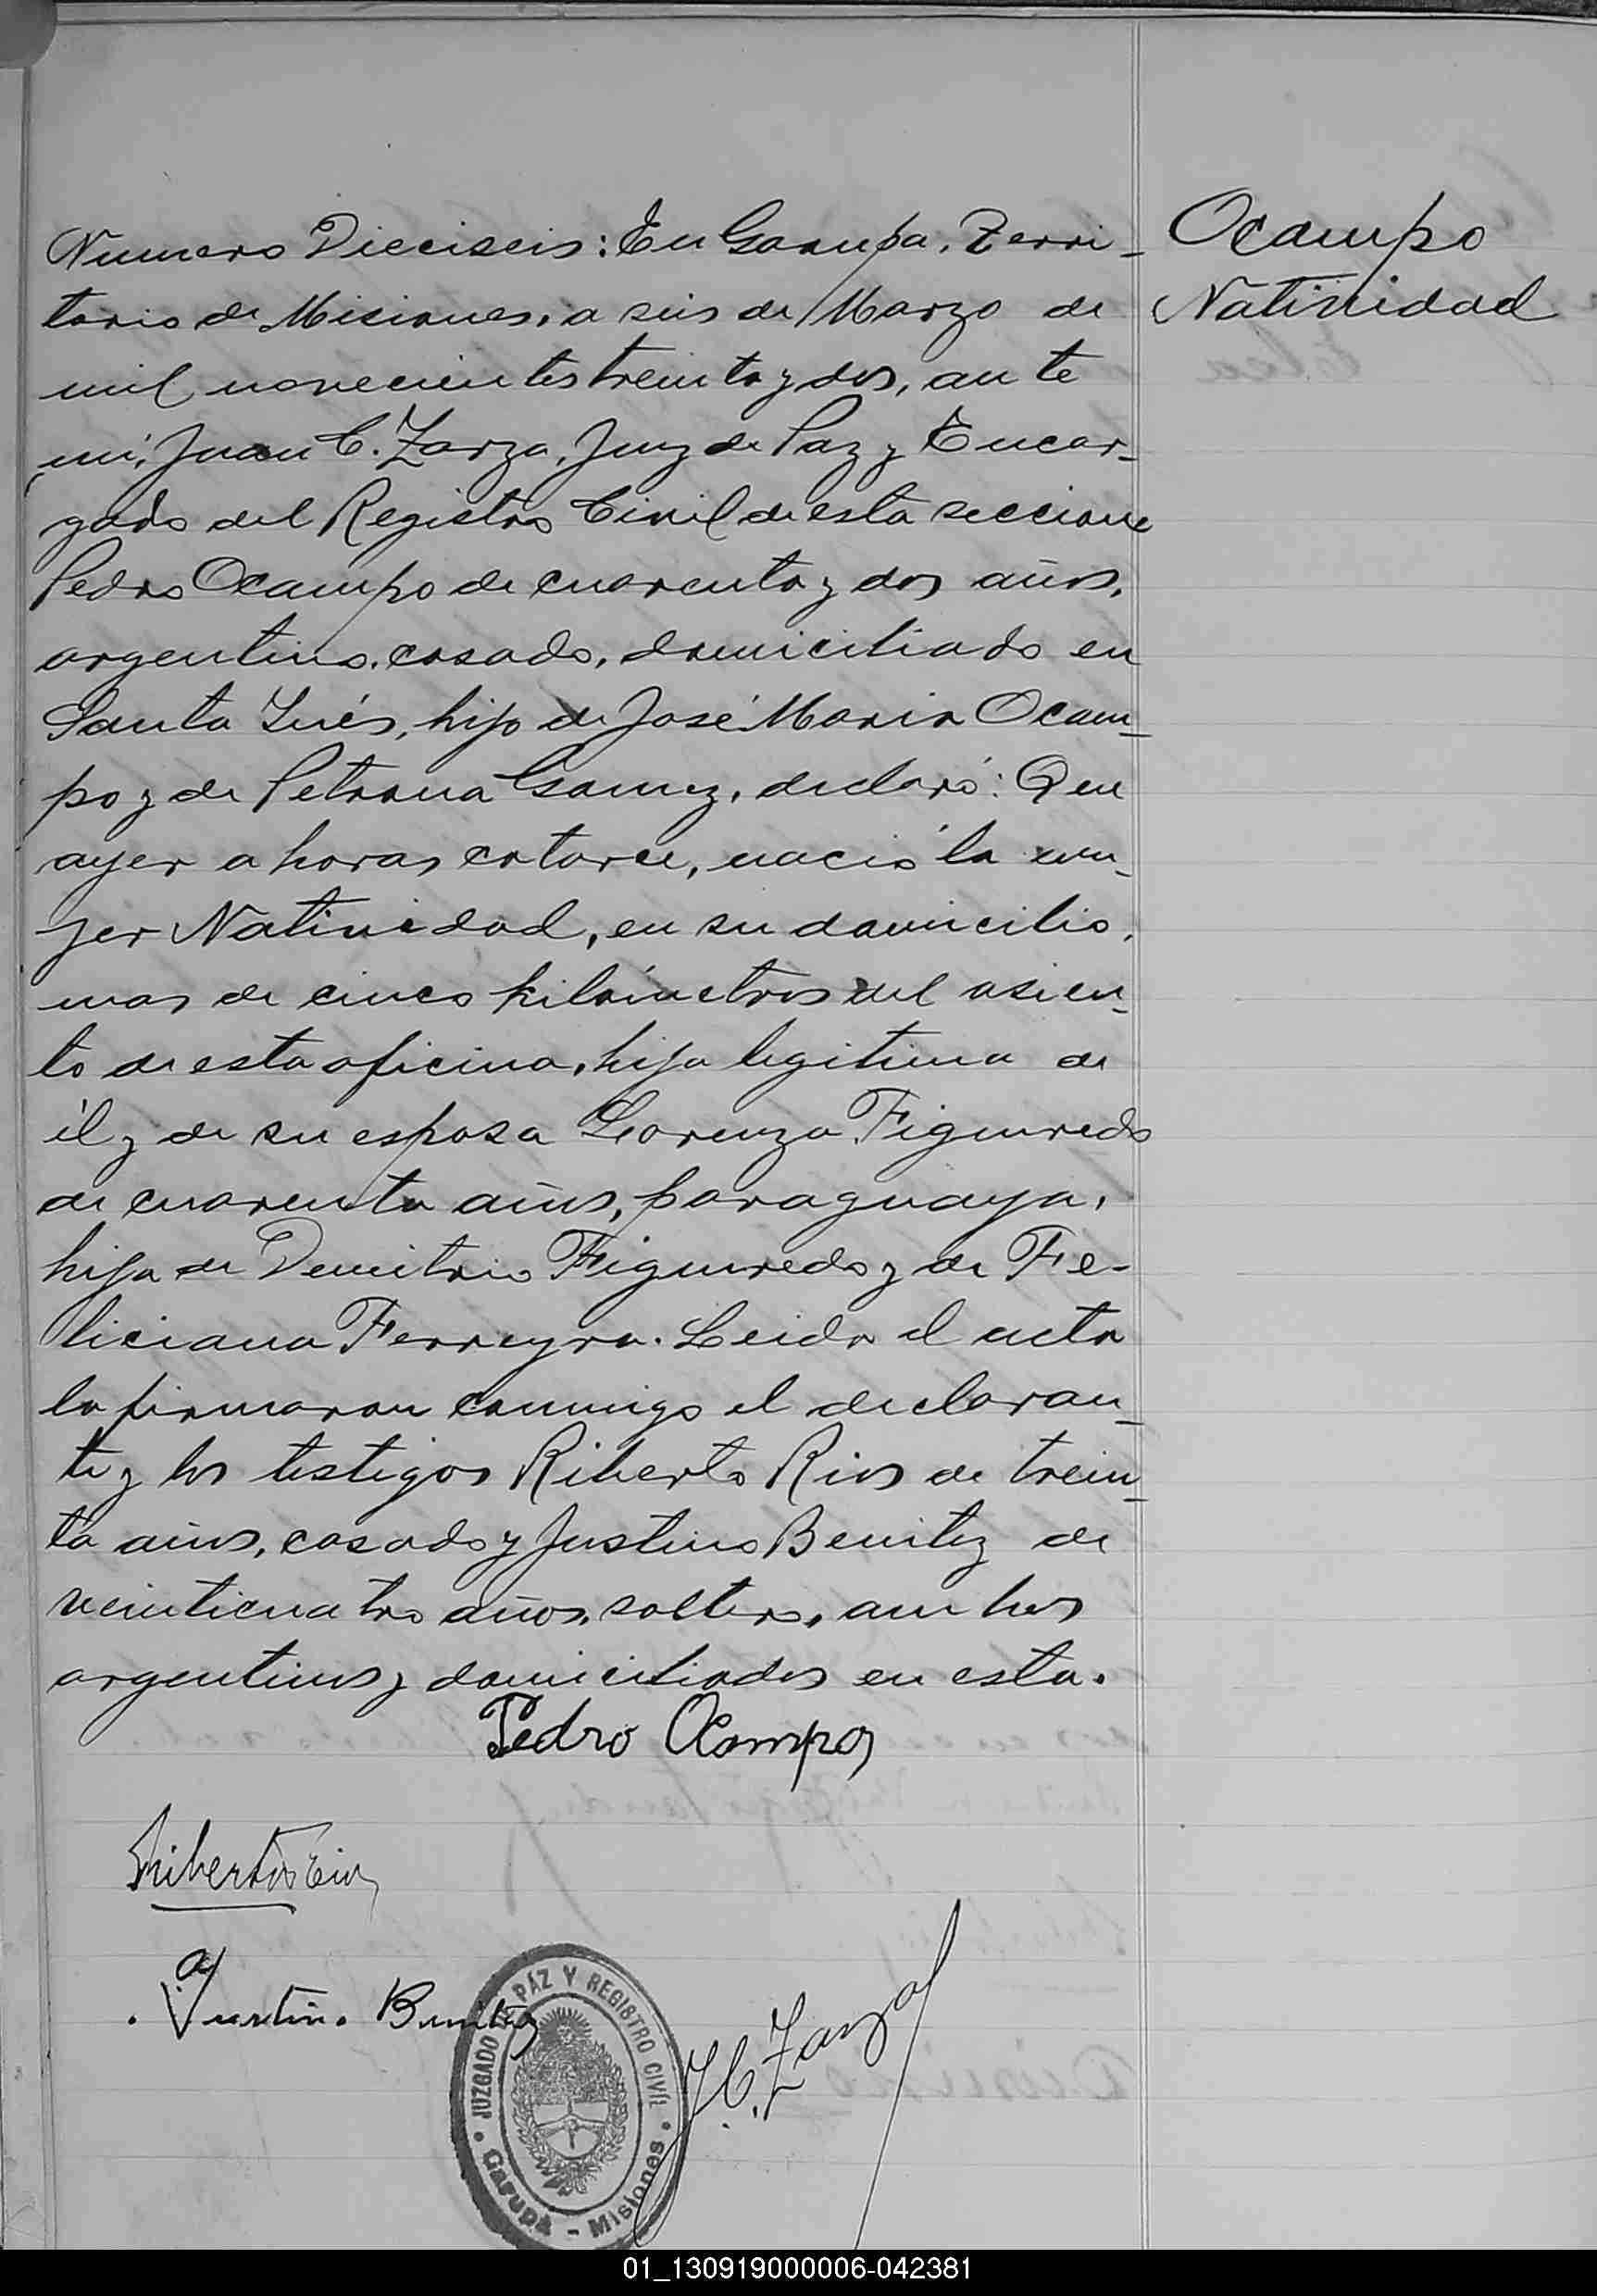 Numero Dieciseis: En Garupa, Terri-
torio de Misiones, a seis de Marzo de
mil novecientos treinta y dos, ante
mi, Juan C. Zarza, Juez de Paz y Encar-
gado del Registro Civil de esta seccion
Pedro Ocampo de cuarenta y dos años,
argentino, casado, domiciliado en
Santa Inés, hijo de José Maria Ocam-
po y de Petrona Gamez, declaró: Que
ayer a horas catorce, nació la mu-
jer Natividad, en su domicilio,
mas de cinco kilómetros del asien-
to de esta oficina, hija legitima de
él y de su esposa Lorenza Figueredo
de cuarenta años, paraguaya,
hija de Demitrio Figueredo y de Fe-
liciana Ferreyra. Leida el acta
la firmaron conmigo el declaran-
te y los testigos Riberto Rios de trein-
ta años, casado y Justino Benitez de
veinticuatro años, soltero, ambos
argentinos y domiciliados en esta.
Ocampo
Natividad
Pedro Ocampo
Riberto Rios
Justino Benitez
J. C. Zarza
JUZGADO DE PÁZ Y REGISTRO CIVIL
Garupá - Misiones
01_130919000006-042381